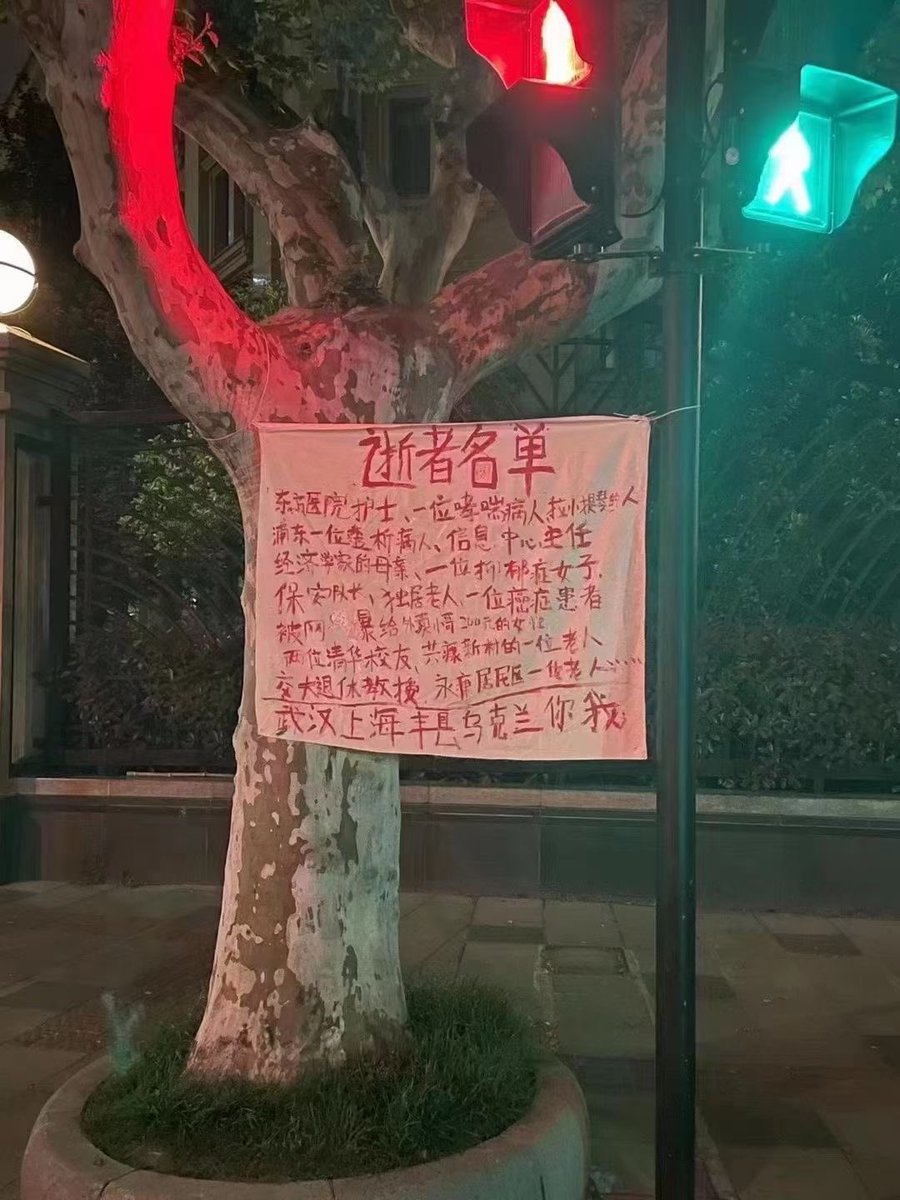 逝者名单
东方医院护士、一位哮喘病人、拉小提琴的人
浦东一位透析病人、信息中心主任
经济学家的母亲、一位抑郁症女子、
保安队长、独居老人、一位癌症患者
被网暴给外卖小哥200元的女性
两位清华校友、共康新村的一位老人
交大退休教授 永康居民区一位老人……
武汉上海丰县乌克兰你我